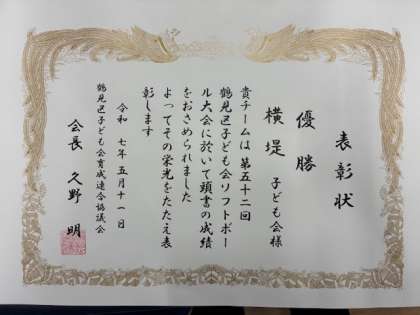 表彰状
優勝
横堤 子ども会様
貴チームは第五十二回
鶴見区子ども会ソフトボー
ル大会に於いて頭書の成績
をおさめられました
よってその栄光をたたえ表
彰します
令和 七年 五月 十一 日
鶴見区子ども会育成連合協議会
会長 久野 明